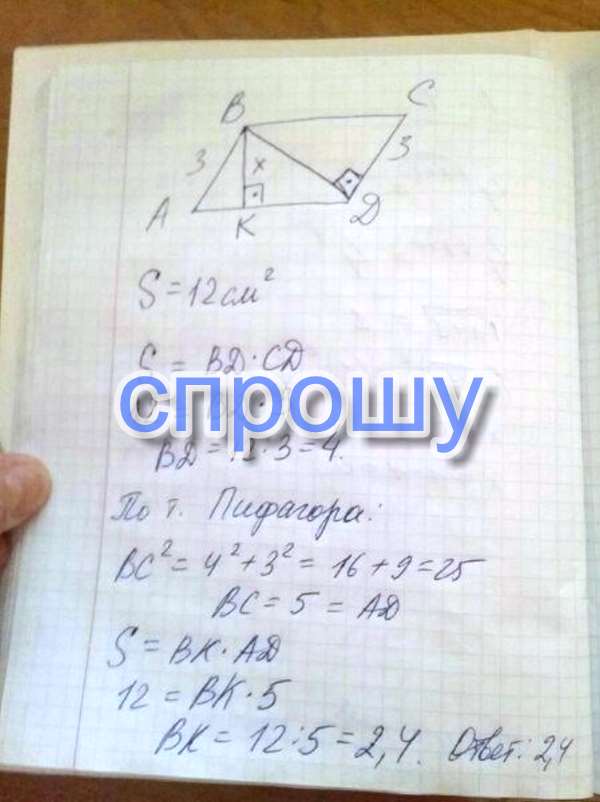 B
C
3
x
3
A
K
D
S = 12 см²
S = BD · CD
спрошу
BD = 12 : 3 = 4.
По т. Пифагора:
BC² = 4² + 3² = 16 + 9 = 25
BC = 5 = AD
S = BK · AD
12 = BK · 5
BK = 12 : 5 = 2,4. Ответ: 2,4